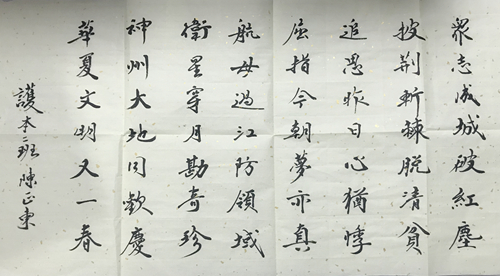 眾志成城破紅塵
披荆斬棘脱清貧
追思昨日心猶悸
屈指今朝夢亦真
航母過江防領域
衛星穿月勘奇珍
神州大地同歡慶
華夏文明又一春
護本二班 陳正東